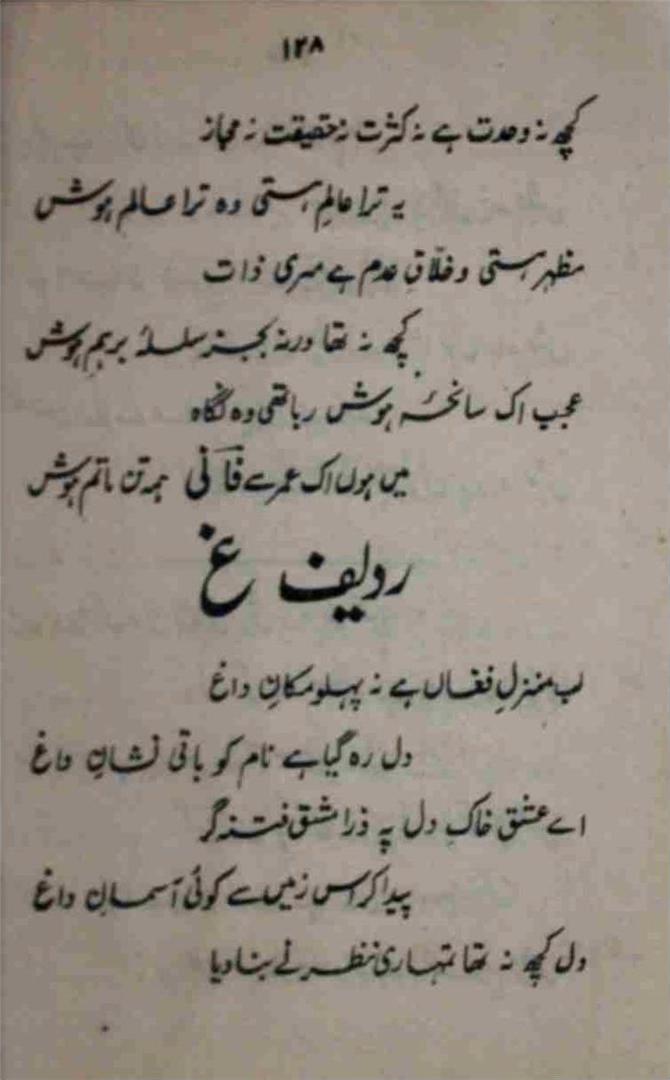 ۱۲۸
کچھ نہ وحدت ہے نہ کثرت نہ حقیقت نہ مجاز
یہ ترا عالمِ ہستی وہ ترا عالم ہوش
مظہر ہستی و خلّاقِ عدم ہے مری ذات
کچھ نہ تھا ورنہ بجز سلسلۂ برہمِ ہوش
عجب اک سانحۂ ہوش ربا تھی وہ نگاہ
میں ہوں اک عمر سے فانی ہمہ تن ماتم ہوش
ردیف غ
لب منزلِ فغاں ہے نہ پہلو مکانِ داغ
دل رہ گیا ہے نام کو باقی نشانِ داغ
اے عشق خاکِ دل پہ ذرا مشق فتنہ گر
پیدا کر اس زمیں سے کوئی آسمانِ داغ
دل کچھ نہ تھا تمہاری نظر نے بنا دیا